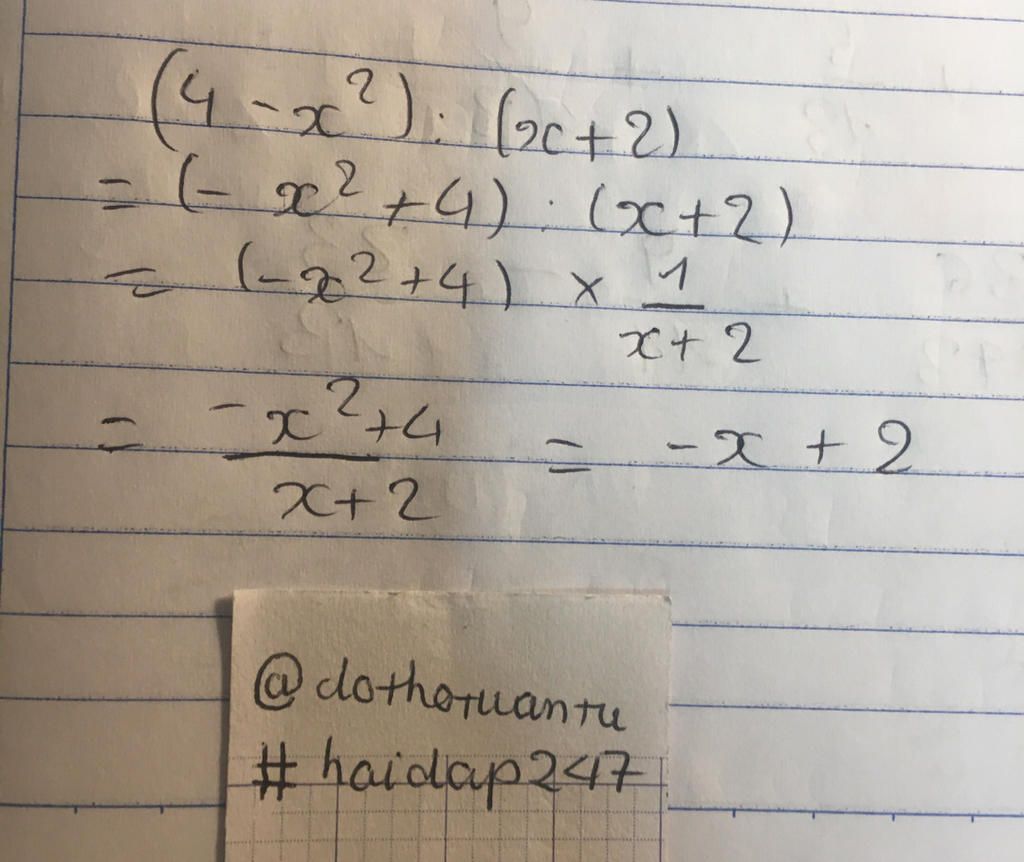 (4 - x²) : (x + 2)
= (- x² + 4) : (x + 2)
= (-x² + 4) × 1/(x + 2)
= (-x² + 4)/(x + 2) = -x + 2
@dothotuantu
# hoidap247